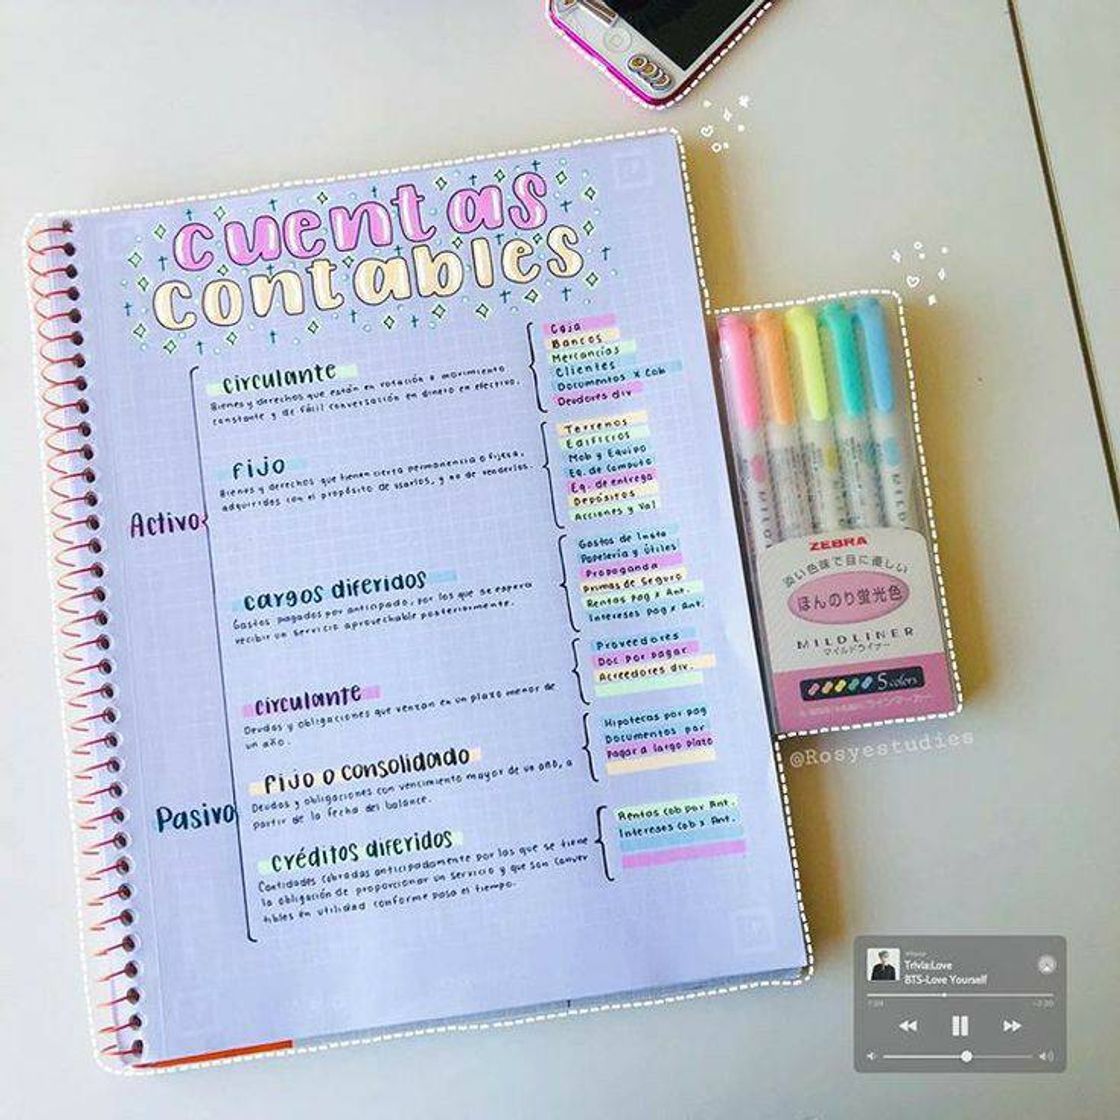 cuentas
contables
Activo
circulante
Bienes y derechos que están en rotación o movimiento
constante y de fácil conversación en dinero en efectivo.
Caja
Bancos
Mercancías
Clientes
Documentos x Cob
Deudores div
fijo
Bienes y derechos que tienen cierta permanencia o fijeza,
adquiridos con el propósito de usarlos, y no de venderlos.
Terrenos
Edificios
Mob y Equipo
Eq. de Computo
Eq. de entrega
Depósitos
Acciones y Val
cargos diferidos
Gastos pagados por anticipado, por los que se espera
recibir un servicio aprovechable posteriormente.
Gastos de Insta
Papelería y Útiles
Propaganda
Primas de Seguro
Rentas Pag x Ant.
Intereses pag x Ant.
Pasivo
circulante
Deudas y obligaciones que venzan en un plazo menor de
un año.
Proveedores
Doc Por pagar
Acreedores div.
fijo o consolidado
Deudas y obligaciones con vencimiento mayor de un año, a
partir de la fecha del balance.
Hipotecas por pag
Documentos por
Pagar a largo plazo
créditos diferidos
Cantidades cobradas anticipadamente por las que se tiene
la obligación de proporcionar un servicio y que son conver
tibles en utilidad conforme pasa el tiempo.
Rentas cob por Ant.
Intereses Cob x Ant.
ZEBRA
淡い色味で目に優しい
ほんのり蛍光色
MILDLINER
マイルドライナー
5 colors
@Rosyestudies
Trivia:Love
BTS-Love Yourself